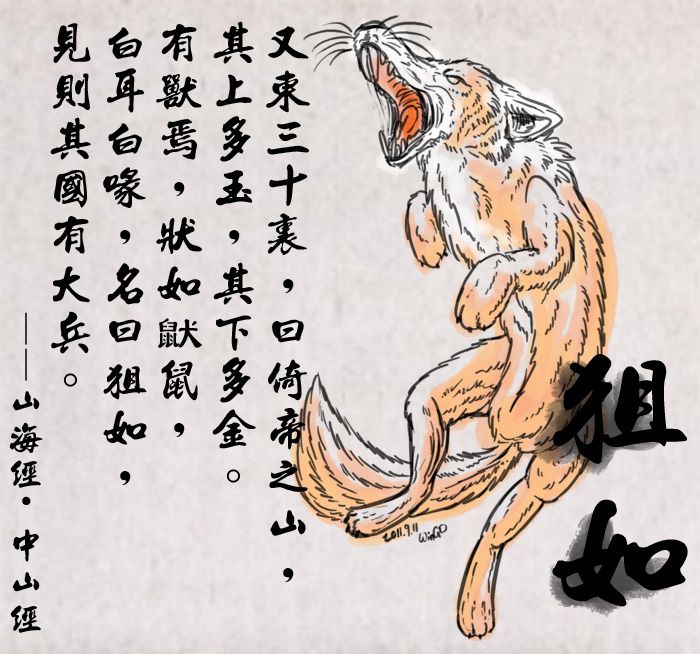 又東三十裏，曰倚帝之山，
其上多玉，其下多金。
有獸焉，狀如鼣鼠，
白耳白喙，名曰狙如，
見則其國有大兵。
——山海經·中山經
狙如
2011.9.11